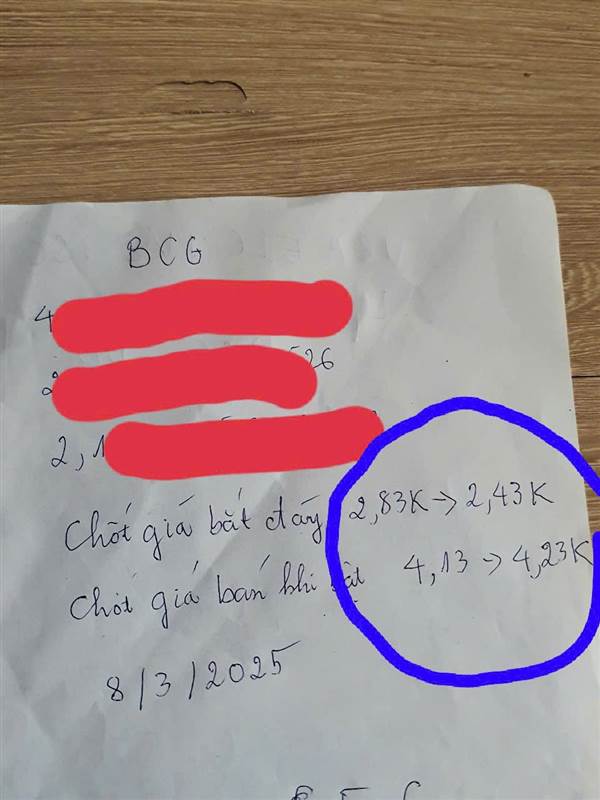 BCG
4
26
2,1
Chốt giá bắt đáy 2,83K → 2,43K
Chốt giá bán khi 4,13 → 4,23K
8/3/2025